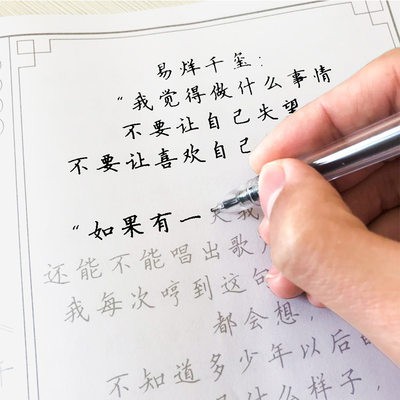 易烊千玺：
“我觉得做什么事情
不要让自己失望
不要让喜欢自己
“如果有一天我
还能不能唱出歌
我每次哼到这句
都会想，
不知道多少年以后的
是什么样子，